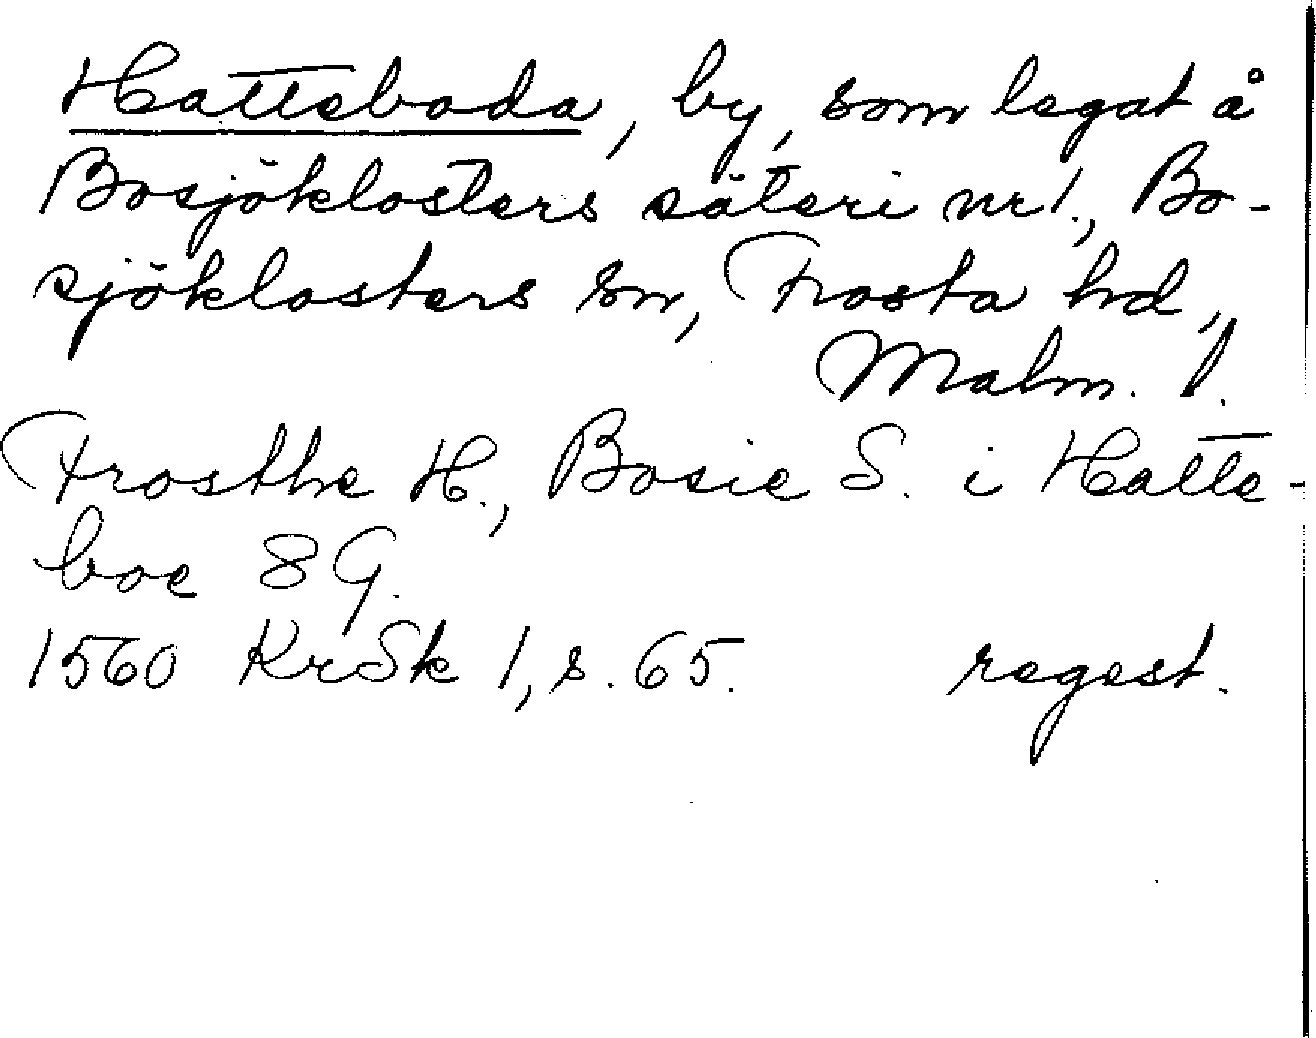 Hatteboda, by, som legat å
Bosjöklosters säteri nr 1., Bo-
sjöklosters sn, Frosta hd,
Malm. l.
Frosthe H., Bosie S. i Hatte-
boe 8 G.
1560 KrSk 1, s. 65. regest.